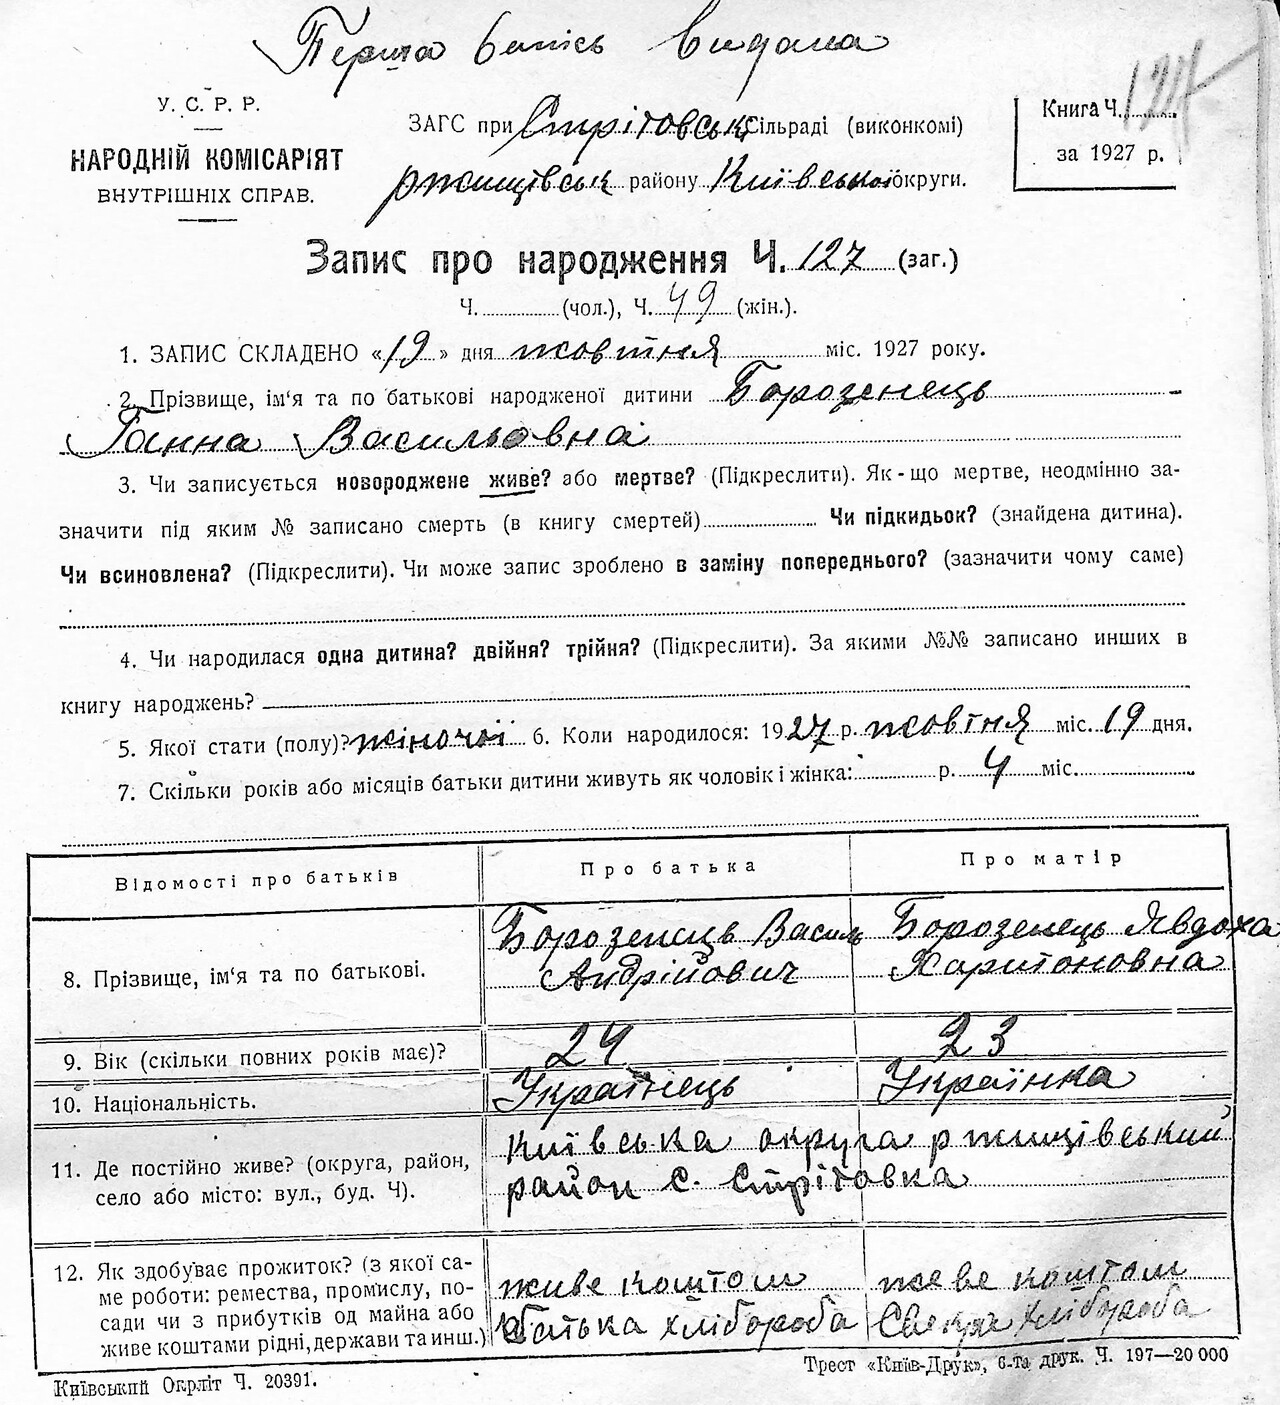 Перша випись видана
У. С. Р. Р.
НАРОДНІЙ КОМІСАРІЯТ
ВНУТРІШНІХ СПРАВ.
ЗАГС при Стрітовськ Сільраді (виконкомі)
ржищівськ району Київської округи.
Книга Ч.
за 1927 р.
Запис про народження Ч. 127 (заг.)
Ч. (чол.), Ч. 49 (жін.).
1. ЗАПИС СКЛАДЕНО «19» дня жовтня міс. 1927 року.
2. Прізвище, ім‘я та по батькові народженої дитини Борозенець
Ганна Васильовна
3. Чи записується новороджене живе? або мертве? (Підкреслити). Як-що мертве, неодмінно за-
значити під яким № записано смерть (в книгу смертей) Чи підкидьок? (знайдена дитина).
Чи всиновлена? (Підкреслити). Чи може запис зроблено в заміну попереднього? (зазначити чому саме)
4. Чи народилася одна дитина? двійня? трійня? (Підкреслити). За якими №№ записано инших в
книгу народжень?
5. Якої стати (полу)? жіночої 6. Коли народилося: 1927 р. жовтня міс. 19 дня.
7. Скільки років або місяців батьки дитини живуть як чоловік і жінка: р. 4 міс.
Відомості про батьків Про батька Про матір
8. Прізвище, ім‘я та по батькові. Борозенець Василь Андрійович Борозенець Явдоха Харитоновна
9. Вік (скільки повних років має)? 24 23
10. Національність. Українець Українка
11. Де постійно живе? (округа, район, Київська округа ржищівський
село або місто: вул., буд. Ч). район с. Стрітовка
12. Як здобуває прожиток? (з якої са-
ме роботи: ремества, промислу, по- живе коштом живе коштом
сади чи з прибутків од майна або
живе коштами рідні, держави та инш.) батька хлібороба Свекра хлібороба
Київський Окрліт Ч. 20391.
Трест «Київ-Друк», 6-та друк. Ч. 197—20 000